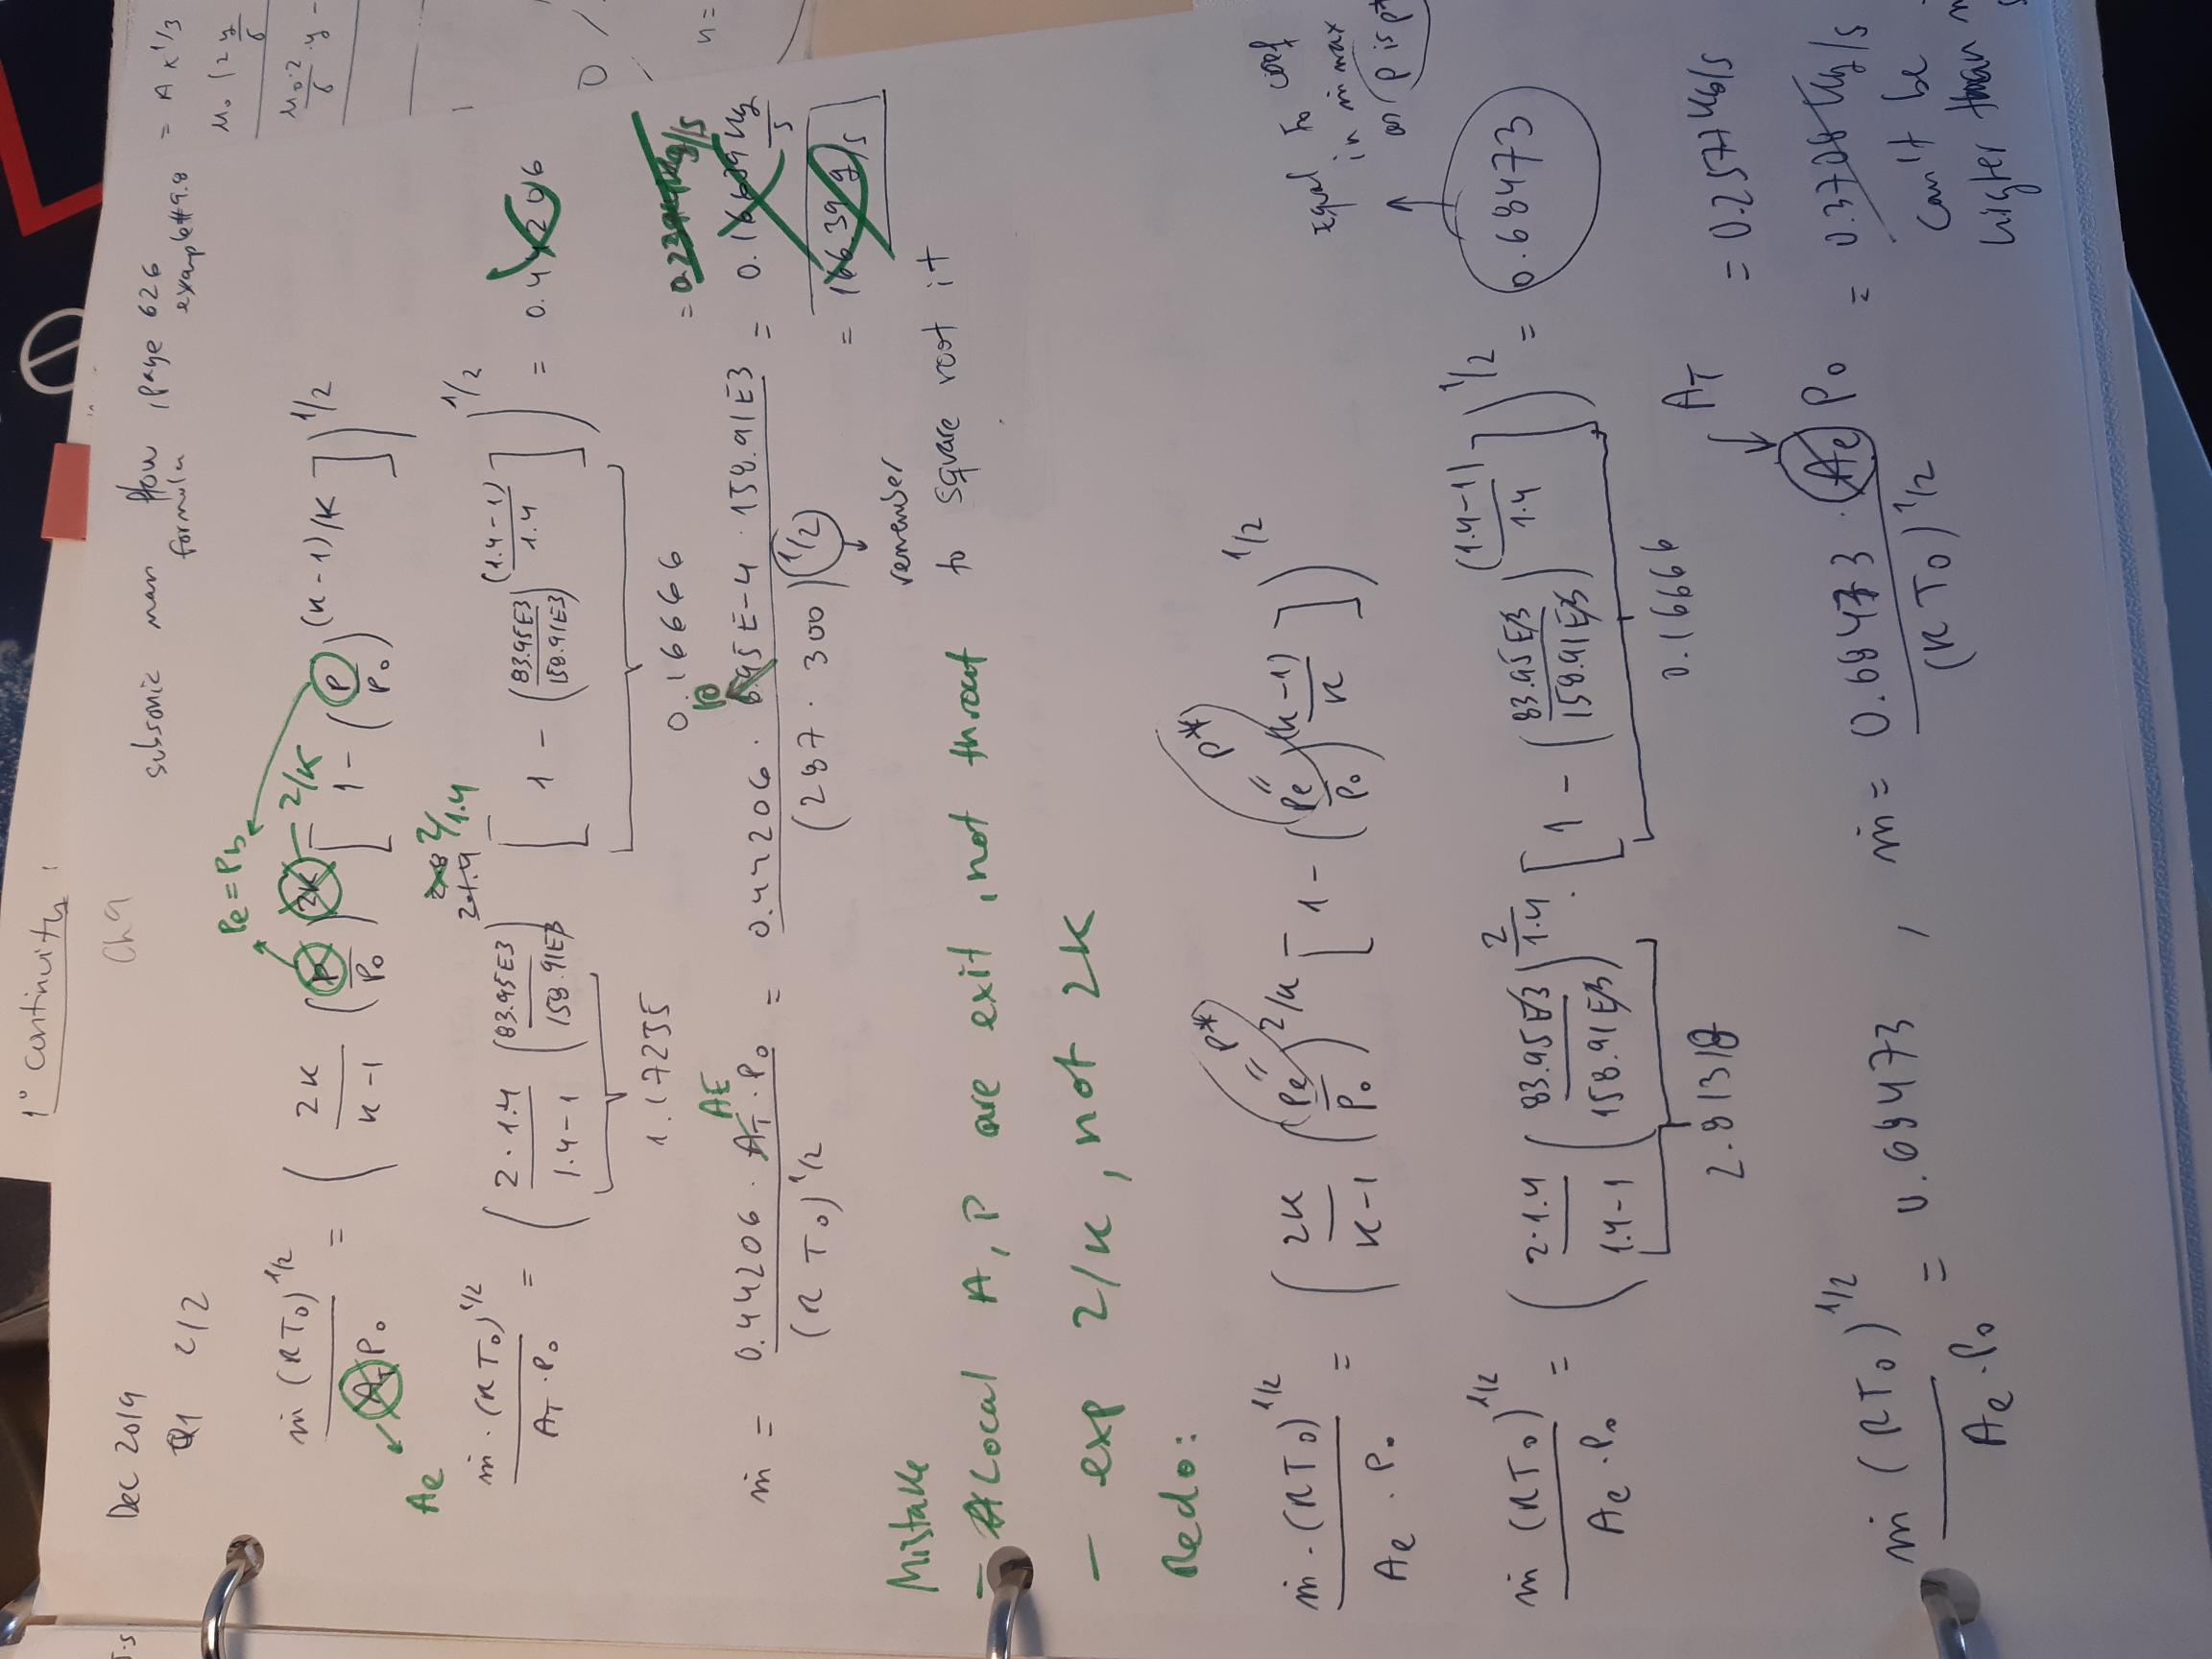 1° continuity :
Dec 2019
Ch 9
Q1 2/2
subsonic man flow , page 626
formula example #9.8
= A x^1/3
Pe = Pb
ṁ (RT₀)^1/2 / A_T P₀ = ( 2K / K-1 (P / P₀)^2K 2/K [ 1 - (P / P₀)^(K-1)/K ] )^1/2
Ae
2/1.4
ṁ · (RT₀)^1/2 / A_T · P₀ = ( 2 · 1.4 / 1.4-1 (83.95E3 / 158.91E3) [ 1 - (83.95E3 / 158.91E3)^(1.4-1)/1.4 ] )^1/2 = 0.44206
1.17235
0.16666
AE
10
ṁ = 0.44206 · A_T · P₀ / (R T₀)^1/2 = 0.44206 · 6.95E-4 · 158.91E3 / (287 · 300)^1/2 = 0.16639 kg/s
= 166.39 g/s
remember
to square root it
Mistake
- Local A, P are exit, not throat
- exp 2/K, not 2K
Redo:
P* P*
= =
ṁ · (RT₀)^1/2 / Ae · P₀ = ( 2K / K-1 (Pe / P₀)^2/K [ 1 - (Pe / P₀)^(K-1)/K ] )^1/2
Equal to coef
in ṁ max
as p is p*
ṁ (RT₀)^1/2 / Ae · P₀ = ( 2·1.4 / 1.4-1 (83.95E3 / 158.91E3)^2/1.4 · [ 1 - (83.95E3 / 158.91E3)^(1.4-1)/1.4 ] )^1/2 = 0.68473
2.81318
0.16666
A_T
= 0.2577 kg/s
ṁ (RT₀)^1/2 / Ae · P₀ = 0.68473 , ṁ = 0.68473 · Ae P₀ / (R T₀)^1/2 = 0.3708 kg/s
can't be
higher than